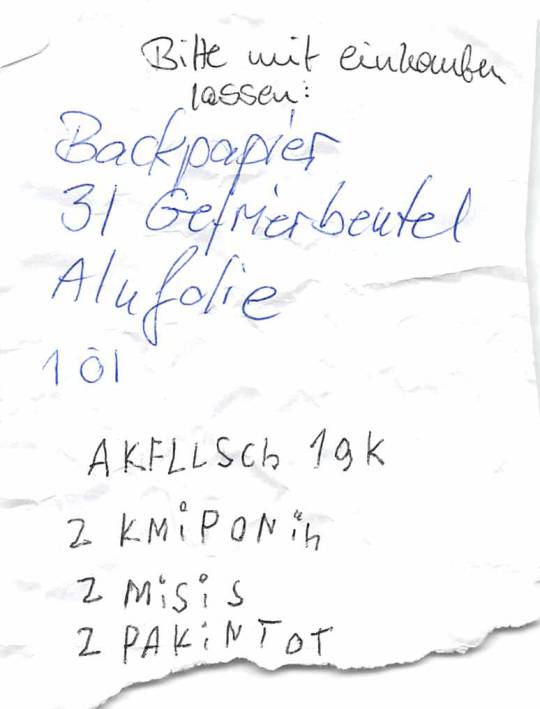 Bitte mit einkaufen
lassen:
Backpapier
3l Gefrierbeutel
Alufolie
1 Öl
AKFLLSch 1gK
2 KMiPONih
2 MiSiS
2 PAKiNTOT